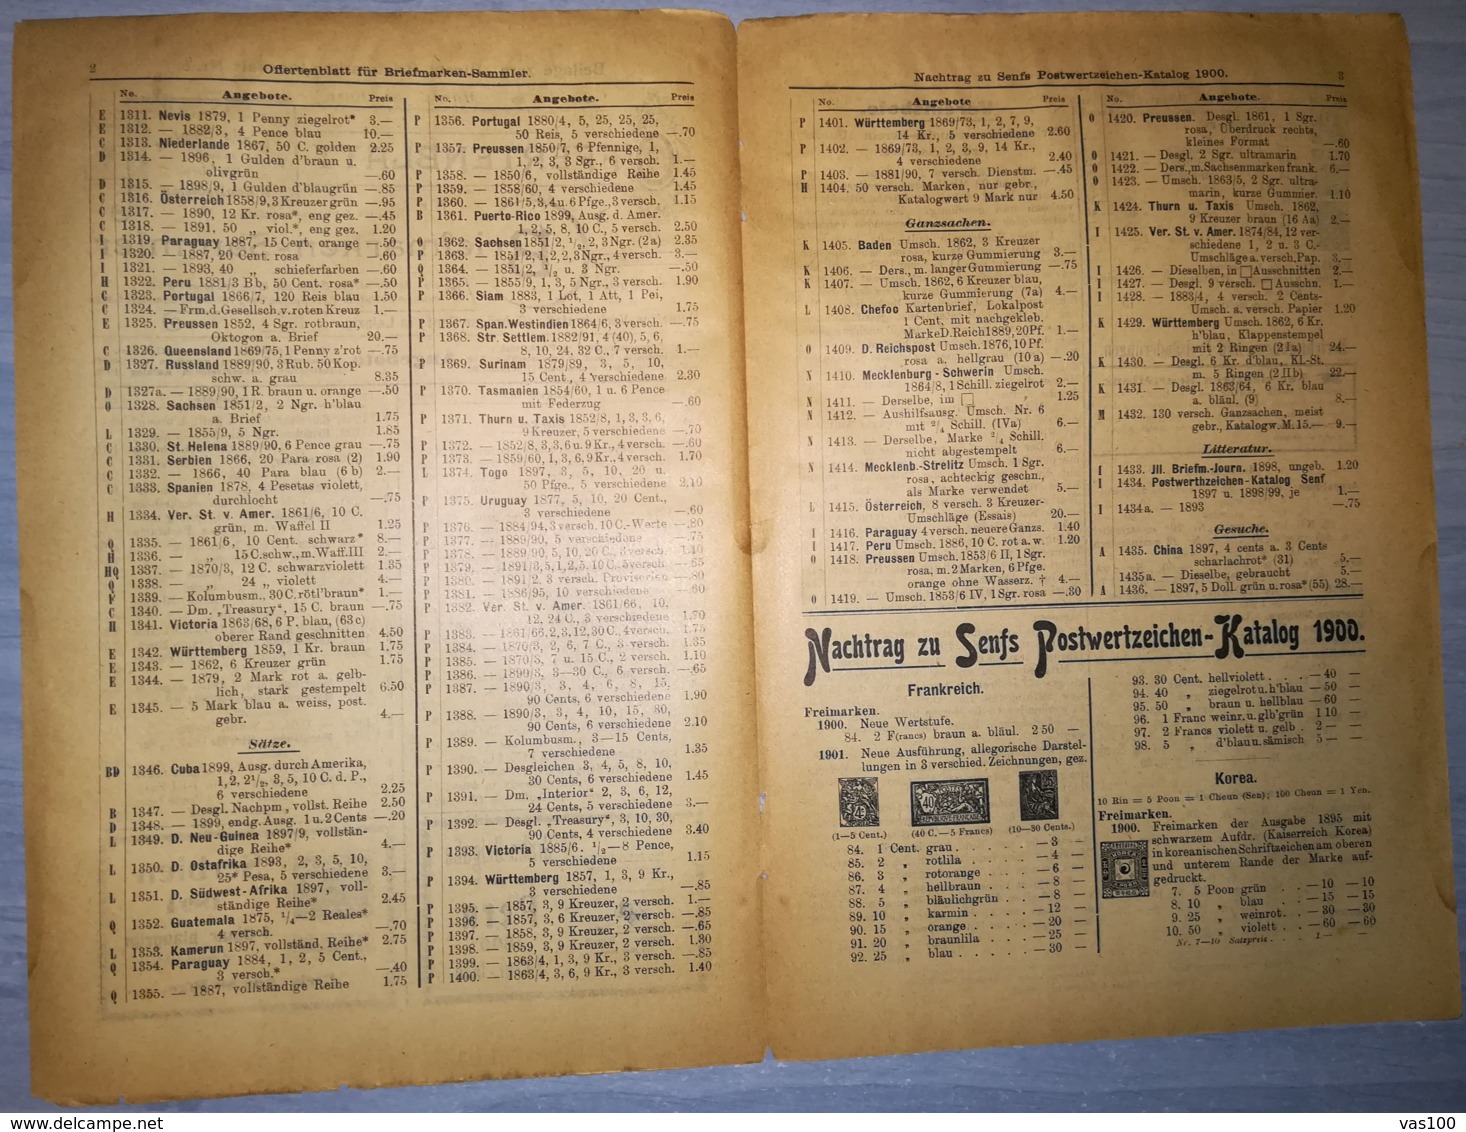 2
Offertenblatt für Briefmarken-Sammler.
No. Angebote. Preis
E 1311. Nevis 1879, 1 Penny ziegelrot* 3.—
E 1312. — 1882/3, 4 Pence blau 10.—
C 1313. Niederlande 1867, 50 C. golden 2.25
D 1314. — 1896, 1 Gulden d'braun u.
olivgrün —.60
D 1315. — 1898/9, 1 Gulden d'blaugrün —.85
C 1316. Österreich 1858/9, 3 Kreuzer grün —.95
C 1317. — 1890, 12 Kr. rosa*, eng gez. —.45
C 1318. — 1891, 50 „ viol.*, eng gez. 1.20
I 1319. Paraguay 1887, 15 Cent. orange —.50
I 1320. — 1887, 20 Cent. rosa —.60
I 1321. — 1893, 40 „ schieferfarben —.60
H 1322. Peru 1881/3 Bb, 50 Cent. rosa* —.50
C 1323. Portugal 1866/7, 120 Reis blau 1.50
C 1324. — Frm. d. Gesellsch. v. roten Kreuz 1.—
E 1325. Preussen 1852, 4 Sgr. rotbraun,
Oktogon a. Brief 20.—
C 1326. Queensland 1869/75, 1 Penny z'rot —.75
D 1327. Russland 1889/90, 3 Rub. 50 Kop.
schw. a. grau 8.35
D 1327a. — 1889/90, 1 R. braun u. orange —.50
O 1328. Sachsen 1851/2, 2 Ngr. h'blau
a. Brief 1.75
L 1329. — 1855/9, 5 Ngr. 1.85
C 1330. St. Helena 1889/90, 6 Pence grau —.75
C 1331. Serbien 1866, 20 Para rosa (2) 1.90
C 1332. — 1866, 40 Para blau (6 b) 2.—
C 1333. Spanien 1878, 4 Pesetas violett,
durchlocht —.75
H 1334. Ver. St. v. Amer. 1861/6, 10 C.
grün, m. Waffel II 1.25
Q 1335. — 1861/6, 10 Cent. schwarz* 8.—
H 1336. — 15 C. schw., m. Waff. III 2.—
HQ 1337. — 1870/3, 12 C. schwarzviolett 1.35
Q 1338. — „ 24 „ violett 4.—
F 1339. — Kolumbusm., 30 C. rötl'braun* 1.—
C 1340. — Dm. „Treasury“, 15 C. braun —.75
H 1341. Victoria 1863/68, 6 P. blau, (63 c)
oberer Rand geschnitten 4.50
E 1342. Württemberg 1859, 1 Kr. braun 1.75
E 1343. — 1862, 6 Kreuzer grün 1.75
E 1344. — 1879, 2 Mark rot a. gelb-
lich, stark gestempelt 6.50
E 1345. — 5 Mark blau a. weiss, post.
gebr. 4.—
Sätze.
BD 1346. Cuba 1899, Ausg. durch Amerika,
1, 2, 2½, 3, 5, 10 C. d. P.,
6 verschiedene 2.25
B 1347. — Desgl. Nachpm, vollst. Reihe 2.50
D 1348. — 1899, endg. Ausg. 1 u. 2 Cents —.20
L 1349. D. Neu-Guinea 1897/9, vollstän-
dige Reihe* 4.—
L 1350. D. Ostafrika 1893, 2, 3, 5, 10,
25* Pesa, 5 verschiedene 3.—
L 1351. D. Südwest-Afrika 1897, voll-
ständige Reihe* 2.45
Q 1352. Guatemala 1875, ¼—2 Reales*
4 versch. —.70
L 1353. Kamerun 1897, vollständ. Reihe* 2.75
Q 1354. Paraguay 1884, 1, 2, 5 Cent.,
3 versch.* —.40
Q 1355. — 1887, vollständige Reihe 1.75
No. Angebote. Preis
P 1356. Portugal 1880/4, 5, 25, 25, 25,
50 Reis, 5 verschiedene —.70
P 1357. Preussen 1850/7, 6 Pfennige, 1,
1, 2, 3, 3 Sgr., 6 versch. 1.—
P 1358. — 1850/6, vollständige Reihe 1.45
P 1359. — 1858/60, 4 verschiedene 1.45
P 1360. — 1861/5, 3, 4 u. 6 Pfge., 3 versch. 1.15
B 1361. Puerto-Rico 1899, Ausg. d. Amer.
1, 2, 5, 8, 10 C., 5 versch. 2.50
O 1362. Sachsen 1851/2, ½, 2, 3 Ngr. (2a) 2.35
P 1363. — 1851/2, 1, 2, 2, 3 Ngr., 4 versch. 3.—
Q 1364. — 1851/2, ½ u. 3 Ngr. —.50
P 1365. — 1855/9, 1, 3, 5 Ngr., 3 versch. 1.90
P 1366. Siam 1883, 1 Lot, 1 Att, 1 Pei,
3 verschiedene 1.75
P 1367. Span. Westindien 1864/6, 3 versch. —.75
P 1368. Str. Settlem. 1882/91, 4 (40), 5, 6,
8, 10, 24, 32 C., 7 versch. 1.—
P 1369. Surinam 1879/89, 3, 5, 10,
15 Cent., 4 verschiedene 2.30
P 1370. Tasmanien 1854/60, 1 u. 6 Pence
mit Federzug —.60
P 1371. Thurn u. Taxis 1852/8, 1, 3, 3, 6,
9 Kreuzer, 5 verschiedene —.70
P 1372. — 1852/8, 3, 3, 6 u. 9 Kr., 4 versch. —.60
P 1373. — 1859/60, 1, 3, 6, 9 Kr., 4 versch. 1.70
L 1374. Togo 1897, 3, 5, 10, 20 u.
50 Pfge., 5 verschiedene 2.10
P 1375. Uruguay 1877, 5, 10, 20 Cent.,
3 verschiedene —.60
P 1376. — 1884/94, 3 versch. 10 C.-Werte —.80
P 1377. — 1889/90, 5 verschiedene —.75
P 1378. — 1889/90, 5, 10, 20 C., 3 versch. 1.40
P 1379. — 1891/3, 5, 1, 2, 5, 10 C. 5 versch. —.65
P 1380. — 1891/2, 3 versch. Provisorien —.80
P 1381. — 1895, 10 verschiedene —.60
P 1382. Ver. St. v. Amer. 1861/66, 10,
12, 24 C., 3 verschiedene 1.70
P 1383. — 1861/66, 2, 3, 12, 30 C., 4 versch. 1.75
P 1384. — 1870/3, 2, 6, 7 C., 3 versch. 1.35
P 1385. — 1870/3, 7 u. 15 C., 2 versch. 1.10
P 1386. — 1890/3, 3—30 C., 6 versch. —.65
P 1387. — 1890/3, 3, 4, 6, 8, 15,
90 Cents, 6 verschiedene 1.90
P 1388. — 1890/3, 3, 4, 10, 15, 30,
90 Cents, 6 verschiedene 2.10
P 1389. — Kolumbusm., 3—15 Cents,
7 verschiedene 1.35
P 1390. — Desgleichen 3, 4, 5, 8, 10,
30 Cents, 6 verschiedene 1.45
P 1391. — Dm. „Interior“ 2, 3, 6, 12,
24 Cents, 5 verschiedene 3.—
P 1392. — Desgl. „Treasury“, 3, 10, 30,
90 Cents, 4 verschiedene 3.40
P 1393. Victoria 1885/6. ½—8 Pence,
5 verschiedene 1.15
P 1394. Württemberg 1857, 1, 3, 9 Kr.,
3 verschiedene —.85
P 1395. — 1857, 3, 9 Kreuzer, 2 versch. 1.—
P 1396. — 1857, 3, 6 Kreuzer, 2 versch. —.85
P 1397. — 1858, 3, 9 Kreuzer, 2 versch. —.65
P 1398. — 1859, 3, 9 Kreuzer, 2 versch. 1.30
P 1399. — 1863/4, 1, 3, 9 Kr., 3 versch. —.85
P 1400. — 1863/4, 3, 6, 9 Kr., 3 versch. 1.40
Nachtrag zu Senfs Postwertzeichen-Katalog 1900.
3
No. Angebote Preis
P 1401. Württemberg 1869/73, 1, 2, 7, 9,
14 Kr., 5 verschiedene 2.60
P 1402. — 1869/73, 1, 2, 3, 9, 14 Kr.,
4 verschiedene 2.40
P 1403. — 1881/90, 7 versch. Dienstm. —.45
H 1404. 50 versch. Marken, nur gebr.,
Katalogwert 9 Mark nur 4.50
Ganzsachen.
K 1405. Baden Umsch. 1862, 3 Kreuzer
rosa, kurze Gummierung 3.—
K 1406. — Ders., m. langer Gummierung —.75
K 1407. — Umsch. 1862, 6 Kreuzer blau,
kurze Gummierung (7a) 4.—
L 1408. Chefoo Kartenbrief, Lokalpost
1 Cent, mit nachgekleb.
Marke D. Reich 1889, 20 Pf. 1.—
O 1409. D. Reichspost Umsch. 1876, 10 Pf.
rosa a. hellgrau (10 a) —.20
N 1410. Mecklenburg-Schwerin Umsch.
1864/8, 1 Schill. ziegelrot 2.—
N 1411. — Derselbe, im □ 1.25
N 1412. — Aushilfsausg. Umsch. Nr. 6
mit 2/4 Schill. (IVa) 6.—
N 1413. — Derselbe, Marke 2/4 Schill.
nicht abgestempelt 6.—
N 1414. Mecklenb.-Strelitz Umsch. 1 Sgr.
rosa, achteckig geschn.,
als Marke verwendet 5.—
L 1415. Österreich, 8 versch. 3 Kreuzer-
Umschläge (Essais) 20.—
I 1416. Paraguay 4 versch. neuere Ganzs. 1.40
I 1417. Peru Umsch. 1886, 10 C. rot a. w. 1.20
O 1418. Preussen Umsch. 1853/6 II, 1 Sgr.
rosa, m. 2 Marken, 6 Pfge.
orange ohne Wasserz. † 4.—
O 1419. — Umsch. 1853/6 IV, 1 Sgr. rosa —.30
No. Angebote. Preis
O 1420. Preussen. Desgl. 1861, 1 Sgr.
rosa, Überdruck rechts,
kleines Format —.60
O 1421. — Desgl. 2 Sgr. ultramarin 1.70
O 1422. — Ders., m. Sachsenmarken frank. 6.—
O 1423. — Umsch. 1863/5, 2 Sgr. ultra-
marin, kurze Gummier. 1.10
K 1424. Thurn u. Taxis Umsch. 1862,
9 Kreuzer braun (16 Aa) 2.—
I 1425. Ver. St. v. Amer. 1874/84, 12 ver-
schiedene 1, 2 u. 3 C.-
Umschläge a. versch. Pap. 3.—
I 1426. — Dieselben, in □ Ausschnitten 2.—
I 1427. — Desgl. 9 versch. □ Ausschn. 1.—
I 1428. — 1883/4, 4 versch. 2 Cents-
Umsch. a. versch. Papier 1.20
K 1429. Württemberg Umsch. 1862, 6 Kr.
h'blau, Klappenstempel
mit 2 Ringen (2 Ia) 24.—
K 1430. — Desgl. 6 Kr. d'blau, Kl.-St.
m. 5 Ringen (2 IIb) 22.—
K 1431. — Desgl. 1863/64, 6 Kr. blau
a. bläul. (9) 8.—
M 1432. 130 versch. Ganzsachen, meist
gebr., Katalogw. M. 15.— 9.—
Litteratur.
I 1433. Jll. Briefm.-Journ. 1898, ungeb. 1.20
I 1434. Postwerthzeichen-Katalog Senf
1897 u. 1898/99, je 1.—
I 1434a. — 1893 —.75
Gesuche.
A 1435. China 1897, 4 cents a. 3 Cents
scharlachrot* (31) 5.—
1435a. — Dieselbe, gebraucht 5.—
A 1436. — 1897, 5 Doll. grün u. rosa* (55) 28.—
Nachtrag zu Senfs Postwertzeichen-Katalog 1900.
Frankreich.
Freimarken.
1900. Neue Wertstufe.
84. 2 F(rancs) braun a. bläul. 2 50 —
1901. Neue Ausführung, allegorische Darstel-
lungen in 3 verschied. Zeichnungen, gez.
(1—5 Cent.) (40 C.—5 Francs) (10—30 Cents.)
84. 1 Cent. grau . . . . . —3 —
85. 2 „ rotlila . . . . —4 —
86. 3 „ rotorange . . . —6 —
87. 4 „ hellbraun . . . —8 —
88. 5 „ bläulichgrün . . —8 —
89. 10 „ karmin . . . . —12 —
90. 15 „ orange . . . . —20 —
91. 20 „ braunlila . . . —25 —
92. 25 „ blau . . . . . —30 —
93. 30 Cent. hellviolett . . . —40 —
94. 40 „ ziegelrot u. h'blau —50 —
95. 50 „ braun u. hellblau —60 —
96. 1 Franc weinr. u. glb'grün 1 10 —
97. 2 Francs violett u. gelb . 2 — —
98. 5 „ d'blau u. sämisch 5 — —
Korea.
10 Rin = 5 Poon = 1 Cheun (Sen); 100 Cheun = 1 Yen.
Freimarken.
1900. Freimarken der Ausgabe 1895 mit
schwarzem Aufdr. (Kaiserreich Korea)
in koreanischen Schriftzeichen am oberen
und unterem Rande der Marke auf-
gedruckt.
7. 5 Poon grün . . —10 —10
8. 10 „ blau . . —15 —15
9. 25 „ weinrot . —30 —30
10. 50 „ violett . . —60 —60
Nr. 7—10 Satzpreis . . . 1.— —
vas100